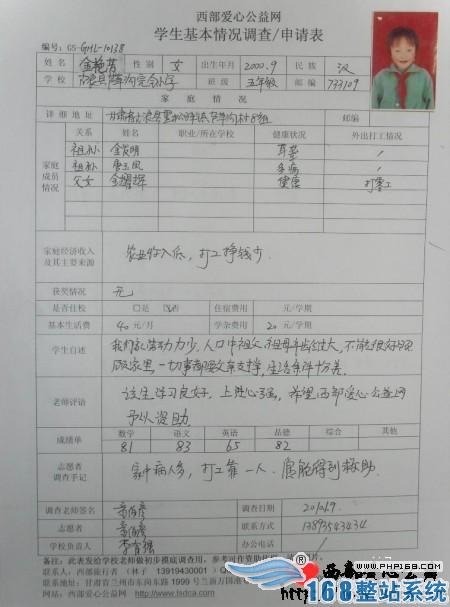 西部爱心公益网
学生基本情况调查/申请表
编号: GS-GHL-10138
姓名 金艳芳 性别 女 出生年月 2000.9 民族 汉
学校 班级 五年级 邮编 733109
家庭情况
详细地址 邮编
家庭成员情况 关系 姓名 职业/所在学校 健康状况 外出打工情况
祖父 金发明 耳聋 /
祖母 唐玉凤 多病 /
父女 金耀辉 健康 打零工
家庭经济收入及其主要来源 农业收入低，打工挣钱少.
获奖情况 无
是否住校 □是 否 住宿费用 元/学期
基本生活费 40 元/月 学杂费用 20 元/学期
学生自述 我们家劳动力少，人口中祖父、祖母年龄过大，不能很好照
顾家里，一切事都要父亲支撑，生活条件十分差.
老师评语 该生学习良好，上进心强，希望西部爱心公益网
予以资助.
成绩单 数学 语文 英语 品德 综合 其他
81 83 65 82
志愿者调查手记 家中病人多，打工靠一人，属能得到救助.
调查老师签名 调查日期 2010.9.
志愿者 联系方式 13893543434
学校负责人 办公电话 /
备注: 此表发给学校老师做初步摸底调查用，参考可作资助
联系: 西部旅行者 (林子 13919430001)
联系地址: 甘肃省兰州市东岗东路1999号兰新万国港
西部爱心公益网 http://www.lsdca.com
WWW.PHP168.COM
168整站系统